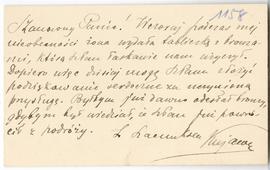 1158
Szanowny Panie! Wczoraj podczas mej
nieobecności żona wydała tabliczkę z bronzami,
którą Pan łaskawie nam użyczył.
Dopiero więc dzisiaj mogę Panu złożyć
podziękowanie serdeczne za
przysługę. Byłbym już dawno odesłał bronzy,
gdybym był wiedział, że Pan już powrócił
z podróży.